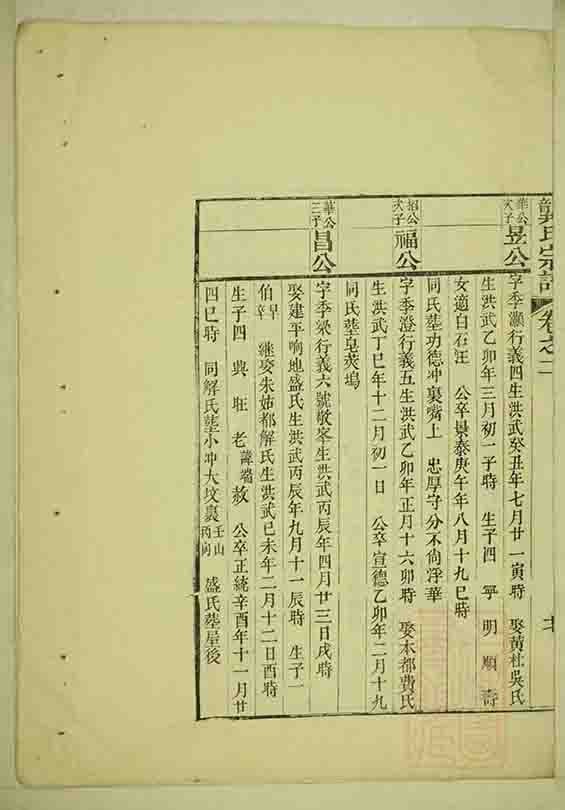 龔氏宗譜 卷之二
華公次子 昱公
字季灝行義四生洪武癸丑年七月廿一寅時 娶黃杜吳氏
生洪武乙卯年三月初一子時 生子四 寧 明 順 壽
女適白石汪 公卒景泰庚午年八月十九巳時
同氏塟功德冲裏嘴上 忠厚守分不尙浮華
招公次子 福公
字季澄行義五生洪武乙卯年正月十六卯時 娶本都費氏
生洪武丁巳年十二月初一日 公卒宣德乙卯年二月十九
同氏塟皂莢塢
華公三子 昌公
字季梁行義六號敬峯生洪武丙辰年四月廿三日戌時
娶建平响地盛氏生洪武丙辰年九月十一辰時 生子一
伯早卒 継娶朱姊都解氏生洪武己未年二月十二日酉時
生子四 興 旺 老 赦 公卒正統辛酉年十一月廿
四巳時 同解氏塟小冲大坟裏壬山丙向 盛氏塟屋後